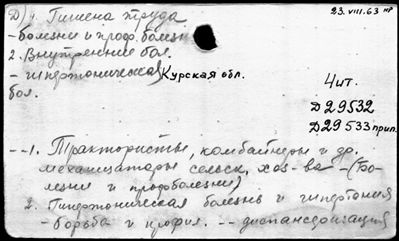 Д) 1. Гигиена труда
23.VIII.63 нр
- болезни и проф. болезн
2. Внутренние бол.
- гипертоническая Курская обл.
бол.
Чит.
Д29532
Д29533 прил.
--1. Трактористы, комбайнеры и др.
механизаторы сельск. хоз-ва - (Бо-
лезни и профболезни)
2. Гипертоническая болезнь и гипертония
- борьба и профил. -- диспансеризация